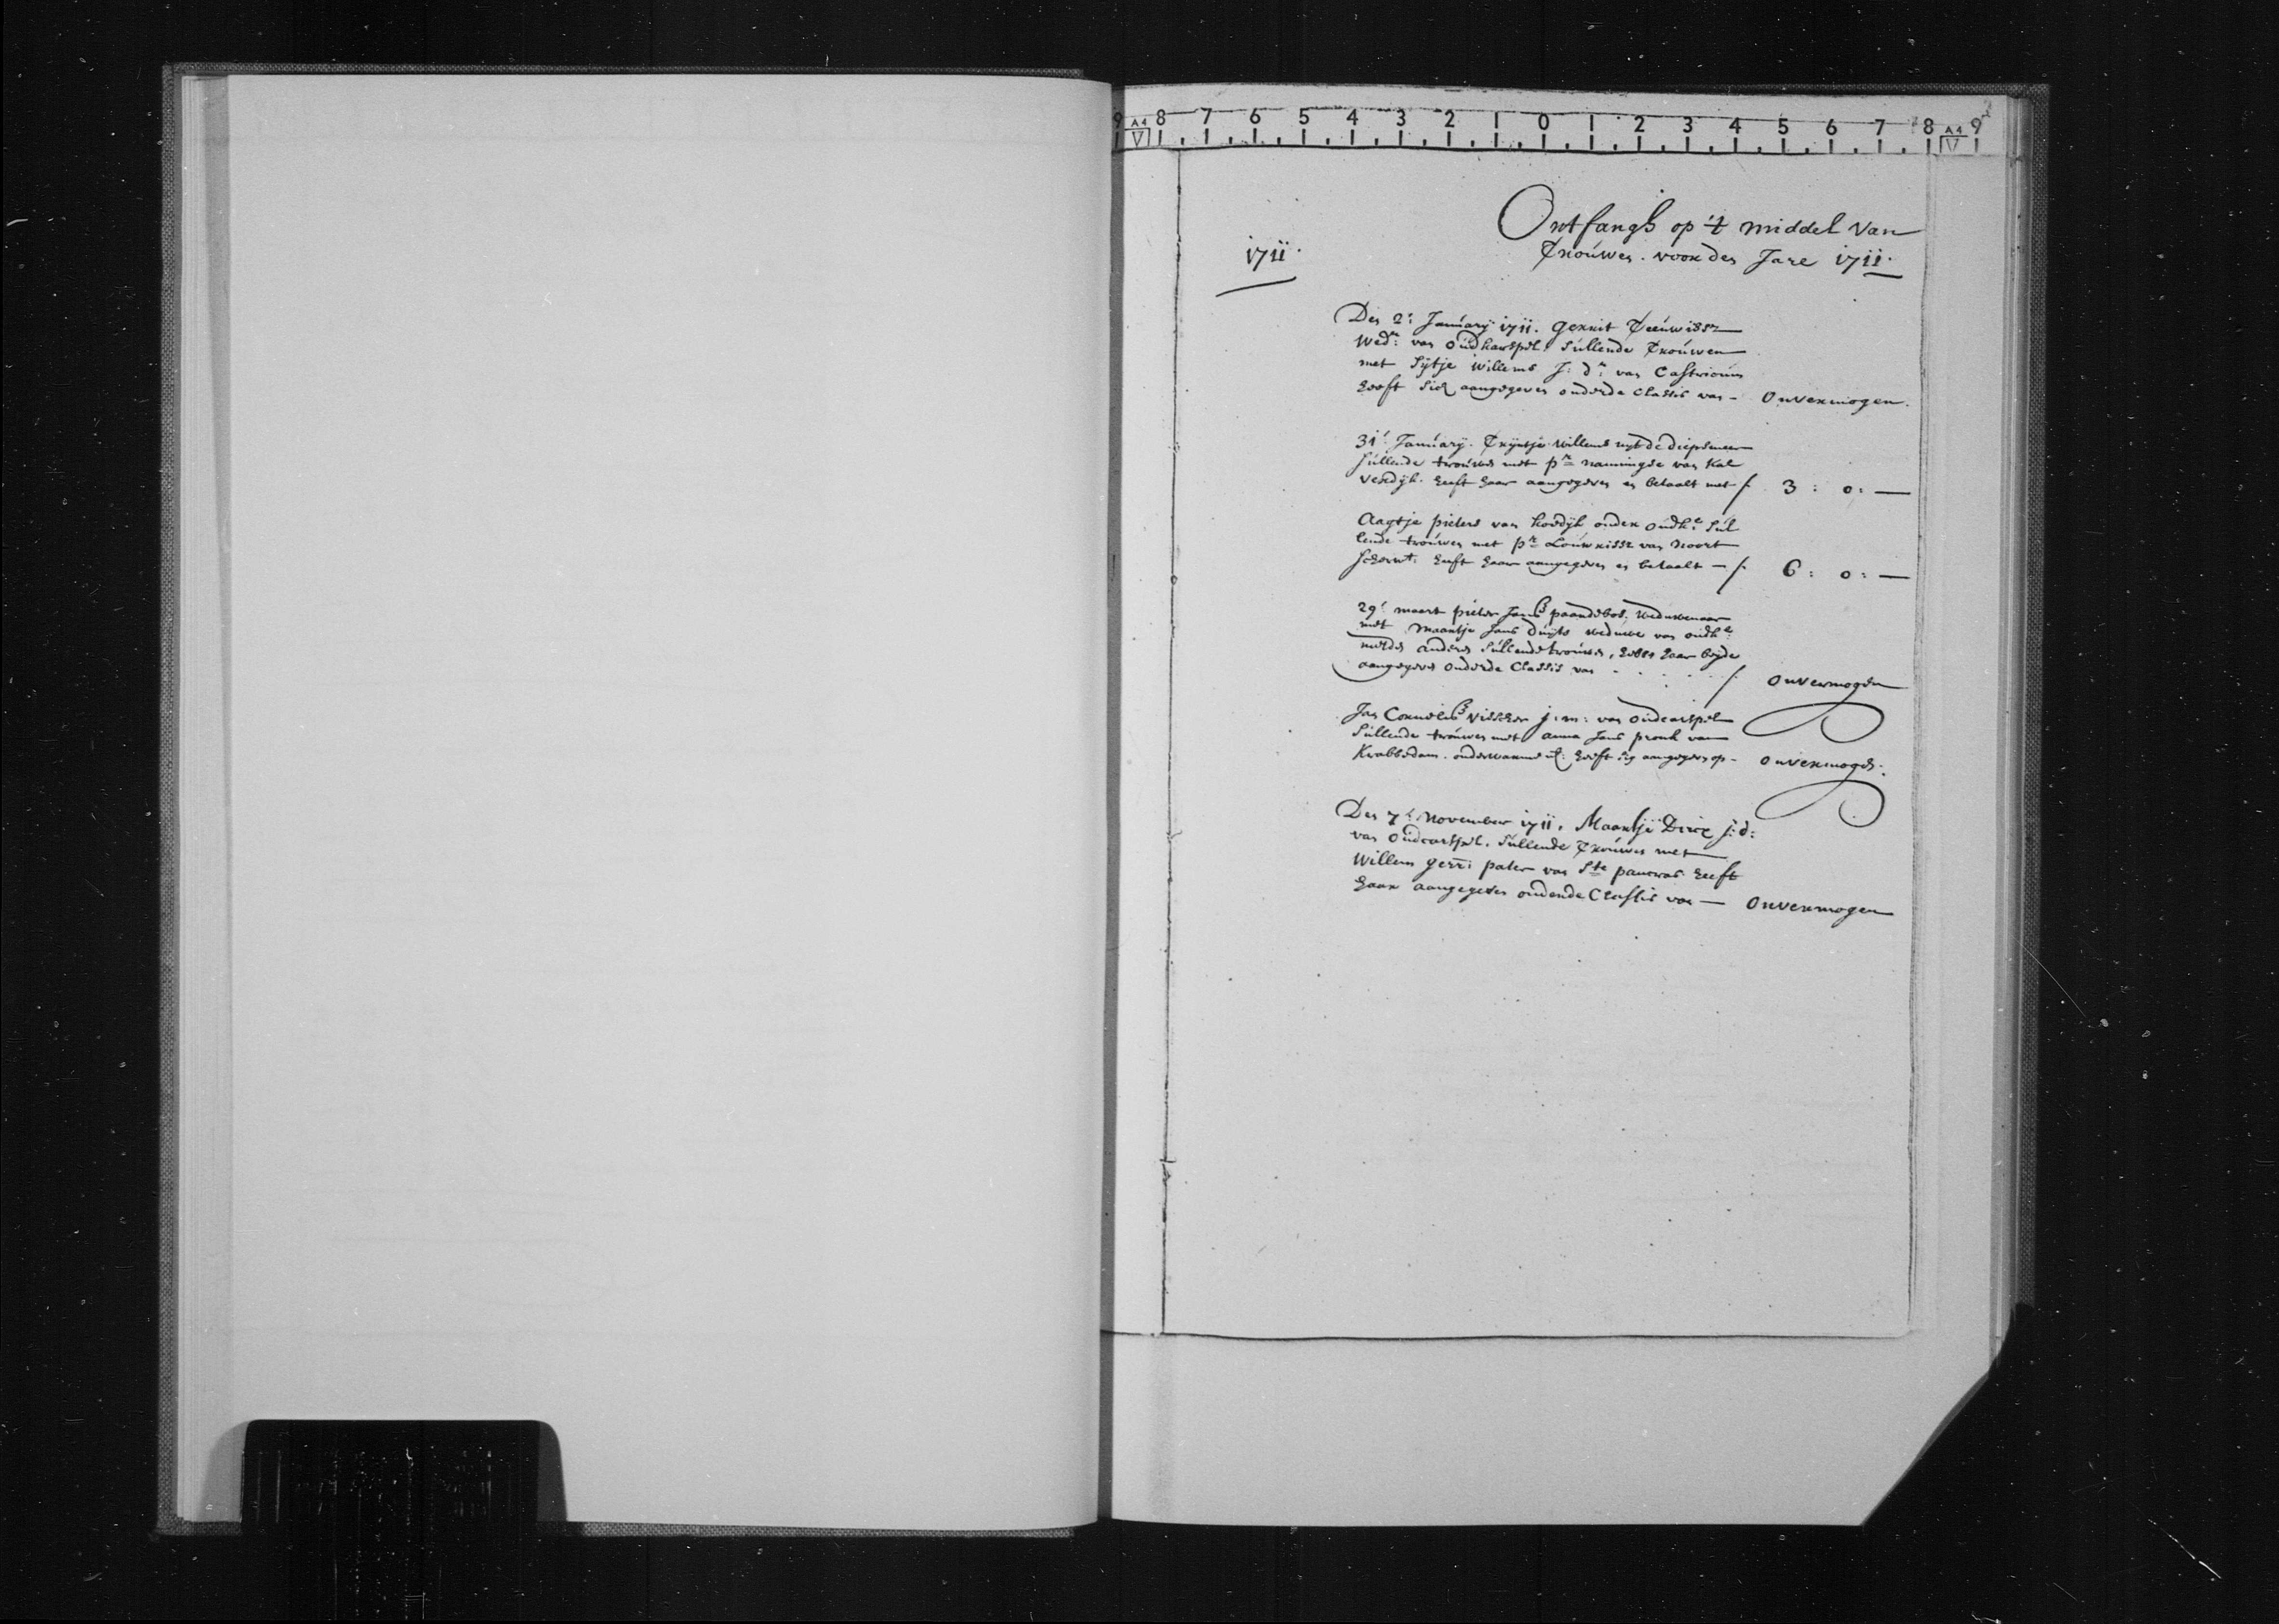 9 8 7 6 5 4 3 2 1 0 1 2 3 4 5 6 7 8 9
A4 A4
Ontfangh op 't middel van
Trouwen voor den Jare 1711.
1711.
Den 2e January 1711. Gerrit Teeuwissz
Wedr: van Oudkarspel, sullende Trouwen
met Sijtje Willems J: dr: van Castricum
heeft sich aangegeven onder de Classis van - Onvermogen.
31e January. Trijntje Willems uyt de diepsmeer
sullende trouwen met pr Nannings van Kal
verdijk. heeft haar aangegeven en betaalt met f 3 : 0 : —
Aagtje pieters van Koedijk onder oudk: sul
lende trouwen met pr Louwrissz van Noort
Scherw: heeft haar aangegeven en betaalt — f 6 : 0 : —
29e maart pieter Jans paardebos, weduwenaar
met Maartje Jans Duijts weduwe van oudk:
met den anderen sullende trouwen, hebben haar beyde
aangegeven onder de Classis van - . . . . f onvermogen
Jan Cornelis Visscher j: m: van Oudcarspel
sullende trouwen met anna Jans pronk van
Krabbedam. heeft sig aangegeven op - onvermogen.
Den 7e November 1711. Maartje Dircx j: d:
van Oudcarspel. sullende Trouwen met
Willem gerr: pater van Ste pancras heeft
haar aangegeven onder de Classis van — Onvermogen